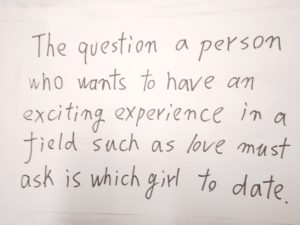 The question a person
who wants to have an
exciting experience in a
field such as love must
ask is which girl to date.